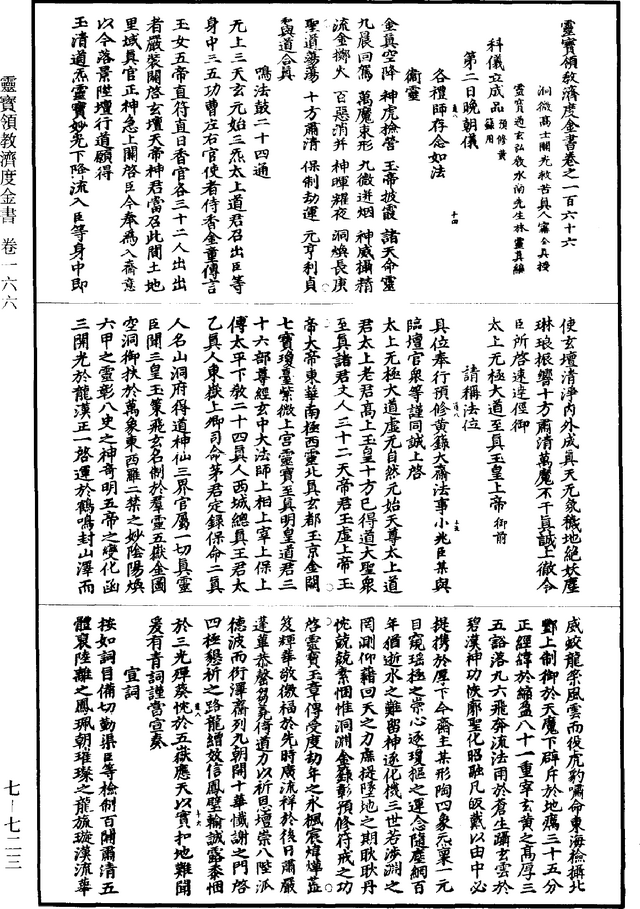 靈寶領教濟度金書卷之一百六十六
洞微高士開光救苦真人甯全真授
靈寶通玄弘教水南先生林靈真編
科儀立成品
預修黃籙用
第二日晚朝儀
各禮師存念如法
衛靈
金真空降　神虎撿營　玉帝披霞　諸天命靈
九晨回駕　萬魔束形　九微迸烟　神威攝精
流金擲火　百惡消并　神暉耀夜　洞煥長庚
聖道蕩蕩　十方肅清　保制劫運　元亨利貞
和與道合真
鳴法鼓二十四通
无上三天玄元始三炁太上道君召出臣等
身中三五功曹左右官使者侍香金童傳言
玉女五帝直符直日香官各三十二人出出
者嚴裝關啓玄壇天帝神君當召此間土地
里域真官正神急上關啓臣今奉為入齋意
以今落景陞壇行道願得
玉清道炁靈寶妙光下降流入臣等身中即
使玄壇清淨內外成真天无氛穢地絕妖塵
琳琅振響十方肅清萬魔不干真誠上徹令
臣所啓速達徑御
太上无極大道至真玉皇上帝御前
請稱法位
具位奉行預修黃籙大齋法事小兆臣某與
臨壇官衆等謹同誠上啓
太上无極大道虛无自然元始天尊太上道
君太上老君高上玉皇十方已得道大聖衆
至真諸君丈人三十二天帝君玉虛上帝玉
帝大帝東華南極西靈北真玄都玉京金闕
七寶瓊臺紫微上宮靈寶至真明皇道君三
十六部尊經玄中大法師上相上宰上保上
傅太平下教二十四真人西城總真王君太
乙真人東嶽上卿司命茅君定錄保命二真
人名山洞府得道神仙三界官屬一切真靈
臣聞三皇玉策飛玄名制於羣靈五嶽金圖
空洞御扶於萬象東西離禁之妙陰陽煥
六甲之靈彰八史之神奇明五帝之變化函
三開光於龍漢正一啓運於鶴鳴封山澤而
威蛟龍策風雲而役虎豹嘯命東海檢攝北
酆上制御於天魔下辟斥於地癘三十五分
正經緯於縮盈八十一重宰玄黃之高厚三
五豁落九六飛奔流法雨於蒼生躡玄雲於
碧漢神功恢廓聖化昭融凡皈戴以由中必
提携於厚下今齋主某形陶四象炁稟一元
目窺瑤極之崇心逐瓊樞之運念隨塵網百
年循逝水之難留神逐化機三世若涉淵之
罔測仰藉回天之力庶提墜地之期耿耿丹
忱兢兢素悃惟洞淵金籙彰預修符戒之功
啓靈寶玉章傳受度劫年之永楓宸煒燁
笈輝華敬徼福於先時廣流祥於後日肅嚴
蓬蓽恭罄芻蕘倚道力以祈恩壇崇八陛派
德波而衍澤齋列九朝開十華懺謝之門啓
四極懇祈之路龍繒效信鳳璧輸誠露黍悃
於三光殫葵忱於五嶽應天以實扣地難聞
爰有青詞謹當宣奏
宣詞
按如詞目備切勤渠臣等檢制百關肅清五
體裒陸離之鳳珮朝璀璨之龍旂漩漢流華
靈寶領教濟度金書　卷一六六
七－七二三